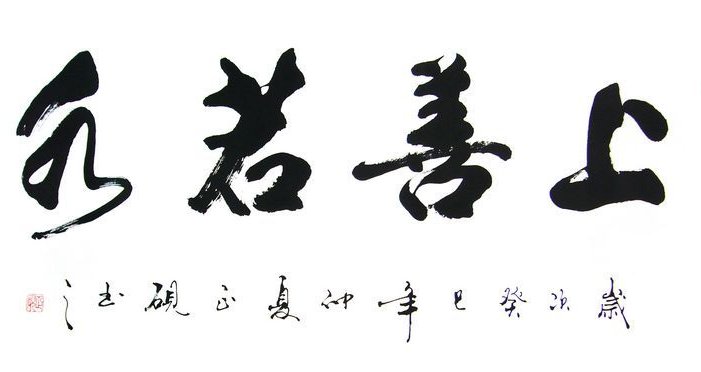 上善若水
岁次癸巳年仲夏正砚书之